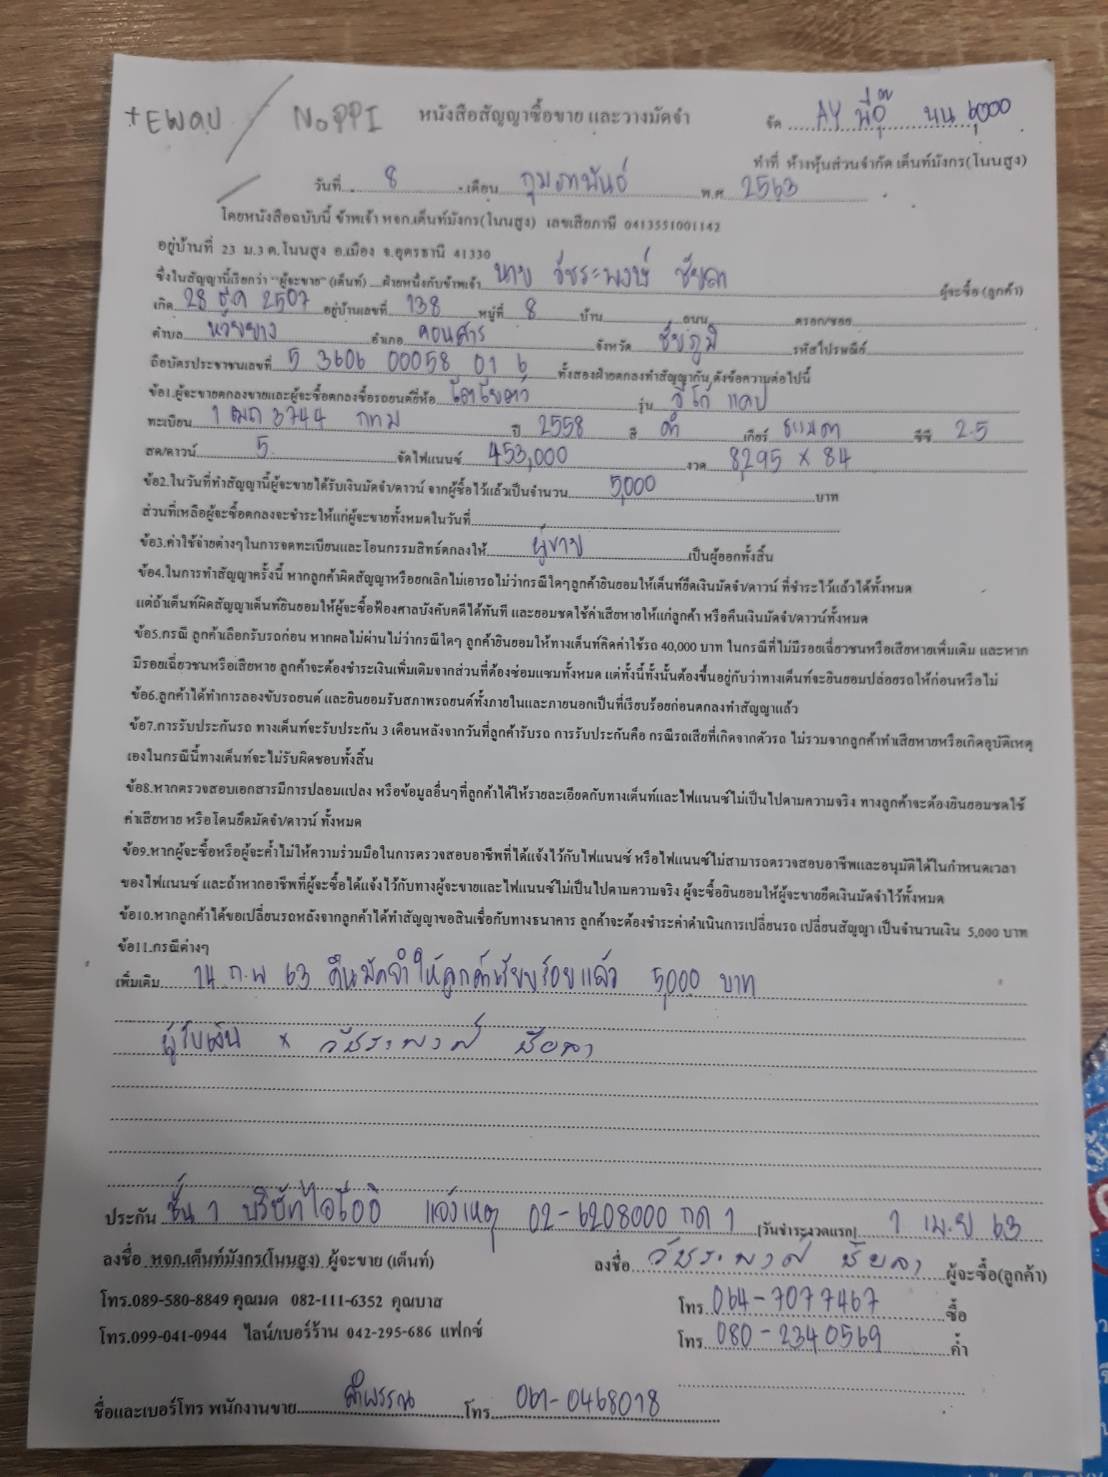 +EWAU / NoPPI หนังสือสัญญาซื้อขาย และวางมัดจำ จัด AY พี่อุ๊ หน 6,000
ทำที่ ห้างหุ้นส่วนจำกัด เต็นท์มังกร(โนนสูง)
วันที่ 8 เดือน กุมภาพันธ์ พ.ศ. 2563
โดยหนังสือฉบับนี้ ข้าพเจ้า หจก.เต็นท์มังกร(โนนสูง) เลขเสียภาษี 0413551001142
อยู่บ้านที่ 23 ม.3 ต.โนนสูง อ.เมือง จ.อุดรธานี 41330
ซึ่งในสัญญานี้เรียกว่า "ผู้จะขาย" (เต็นท์) ฝ่ายหนึ่งกับข้าพเจ้า นาย วัชระพงษ์ ชัยลา ผู้จะซื้อ (ลูกค้า)
เกิด 28 ธค 2507 อยู่บ้านเลขที่ 138 หมู่ที่ 8 บ้าน ถนน ตรอก/ซอย
ตำบล ห้วยยาง อำเภอ คอนสาร จังหวัด ชัยภูมิ รหัสไปรษณีย์
ถือบัตรประชาชนเลขที่ 5 3606 00058 01 6 ทั้งสองฝ่ายตกลงทำสัญญากัน ดังข้อความต่อไปนี้
ข้อ1.ผู้จะขายตกลงขายและผู้จะซื้อตกลงซื้อรถยนต์ยี่ห้อ โตโยต้า รุ่น วีโก้ แคป
ทะเบียน 1 ฒถ 3744 กทม ปี 2558 สี ดำ เกียร์ ธรรมดา ซีซี 2.5
สด/ดาวน์ 5 จัดไฟแนนซ์ 453,000 งวด 8,295 x 84
ข้อ2.ในวันที่ทำสัญญานี้ผู้จะขายได้รับเงินมัดจำ/ดาวน์ จากผู้ซื้อไว้แล้วเป็นจำนวน 5,000 บาท
ส่วนที่เหลือผู้จะซื้อตกลงจะชำระให้แก่ผู้จะขายทั้งหมดในวันที่
ข้อ3.ค่าใช้จ่ายต่างๆในการจดทะเบียนและโอนกรรมสิทธ์ตกลงให้ ผู้ขาย เป็นผู้ออกทั้งสิ้น
ข้อ4.ในการทำสัญญาครั้งนี้ หากลูกค้าผิดสัญญาหรือยกเลิกไม่เอารถ ไม่ว่ากรณีใดๆลูกค้ายินยอมให้เต็นท์ยึดเงินมัดจำ/ดาวน์ ที่ชำระไว้แล้วได้ทั้งหมด
แต่ถ้าเต็นท์ผิดสัญญาเต็นท์ยินยอมให้ผู้จะซื้อฟ้องศาลบังคับคดีได้ทันที และยอมชดใช้ค่าเสียหายให้แก่ลูกค้า หรือคืนเงินมัดจำ/ดาวน์ทั้งหมด
ข้อ5.กรณี ลูกค้าเลือกรับรถก่อน หากผลไม่ผ่านไม่ว่ากรณีใดๆ ลูกค้ายินยอมให้ทางเต็นท์คิดค่าใช้รถ 40,000 บาท ในกรณีที่ไม่มีรอยเฉี่ยวชนหรือเสียหายเพิ่มเติม และหาก
มีรอยเฉี่ยวชนหรือเสียหาย ลูกค้าจะต้องชำระเงินเพิ่มเติมจากส่วนที่ต้องซ่อมแซมทั้งหมด แต่ทั้งนี้ทั้งนั้นต้องขึ้นอยู่กับว่าทางเต็นท์จะยินยอมปล่อยรถให้ก่อนหรือไม่
ข้อ6.ลูกค้าได้ทำการลองขับรถยนต์ และยินยอมรับสภาพรถยนต์ทั้งภายในและภายนอกเป็นที่เรียบร้อยก่อนตกลงทำสัญญาแล้ว
ข้อ7.การรับประกันรถ ทางเต็นท์จะรับประกัน 3 เดือนหลังจากวันที่ลูกค้ารับรถ การรับประกันคือ กรณีรถเสียที่เกิดจากตัวรถ ไม่รวมจากลูกค้าทำเสียหายหรือเกิดอุบัติเหตุ
เองในกรณีนี้ทางเต็นท์จะไม่รับผิดชอบทั้งสิ้น
ข้อ8.หากตรวจสอบเอกสารมีการปลอมแปลง หรือข้อมูลอื่นๆที่ลูกค้าได้ให้รายละเอียดกับทางเต็นท์และไฟแนนซ์ไม่เป็นไปตามความจริง ทางลูกค้าจะต้องยินยอมชดใช้
ค่าเสียหาย หรือโดนยึดมัดจำ/ดาวน์ ทั้งหมด
ข้อ9.หากผู้จะซื้อหรือผู้จะค้ำไม่ให้ความร่วมมือในการตรวจสอบอาชีพที่ได้แจ้งไว้กับไฟแนนซ์ หรือไฟแนนซ์ไม่สามารถตรวจสอบอาชีพและอนุมัติได้ในกำหนดเวลา
ของไฟแนนซ์ และถ้าหากอาชีพที่ผู้จะซื้อได้แจ้งไว้กับทางผู้จะขายและไฟแนนซ์ไม่เป็นไปตามความจริง ผู้จะซื้อยินยอมให้ผู้จะขายยึดเงินมัดจำไว้ทั้งหมด
ข้อ10.หากลูกค้าได้ขอเปลี่ยนรถหลังจากลูกค้าได้ทำสัญญาขอสินเชื่อกับทางธนาคาร ลูกค้าจะต้องชำระค่าดำเนินการเปลี่ยนรถ เปลี่ยนสัญญา เป็นจำนวนเงิน 5,000 บาท
ข้อ11.กรณีต่างๆ
เพิ่มเติม 14 ก.พ 63 คืนมัดจำให้ลูกค้าเรียบร้อยแล้ว 5,000 บาท
ผู้รับเงิน x วัชระพงศ์ ชัยลา
ประกัน ชั้น 1 บริษัทไอโออิ แจ้งเหตุ 02-6208000 กด 1 (วันชำระงวดแรก) 1 เม.ย 63
ลงชื่อ หจก.เต็นท์มังกร(โนนสูง) ผู้จะขาย (เต็นท์) ลงชื่อ วัชระพงศ์ ชัยลา ผู้จะซื้อ(ลูกค้า)
โทร.089-580-8849 คุณมด 082-111-6352 คุณบาส โทร. 064-7077467 ซื้อ
โทร.099-041-0944 ไลน์/เบอร์ร้าน 042-295-686 แฟกซ์ โทร. 080-2340569 ค้ำ
ชื่อและเบอร์โทร พนักงานขาย ลำพรรณ โทร. 061-0468018